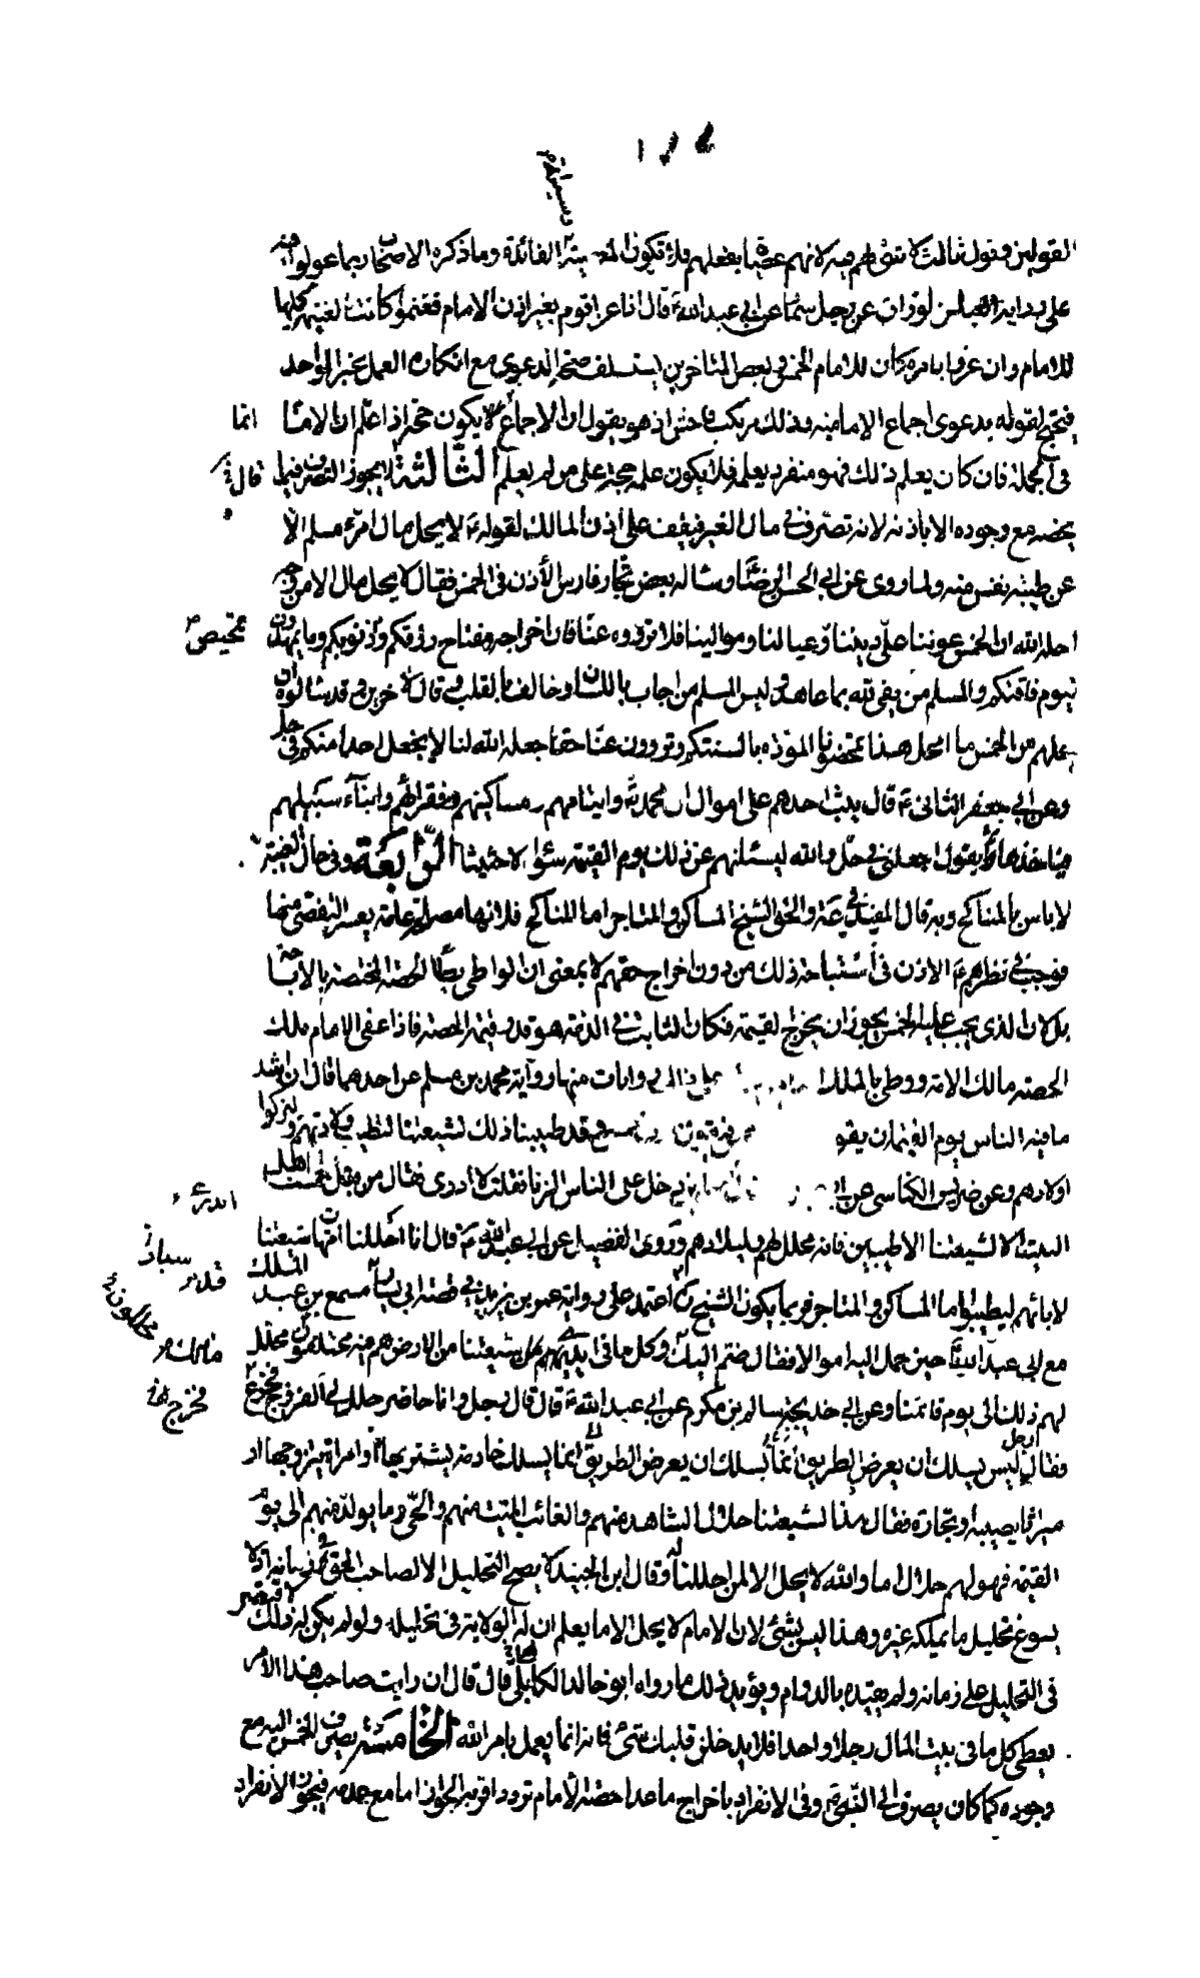 القولين وقول ثالث لا شيء لهم فيه لانهم عصوا بفعلهم فلا تكون الفائدة وما ذكره الاصحاب ربما عولوا فيه
على رواية العباس الوراق عن رجل سماه عن ابي عبد الله ع قال اذا غزا قوم بغير اذن الامام فغنموا كانت الغنيمة كلها
للامام وان غزوا بامره كان للامام الخمس وبعض المتاخرين يستسلف صحة الدعوى مع انكاره العمل بخبر الواحد
فيحتج لقوله بدعوى اجماع الامامية وذلك مرتكب فاحش اذ هو يقول ان الاجماع لا يكون حجة الا اذا علم ان الامام
في الجملة فان كان يعلم ذلك فهو منفرد بعلمه فلا يكون علمه حجة على من لم يعلم الثالثة لا يجوز التصرف فيما
يخصه مع وجوده الا باذنه لانه تصرف في مال الغير فيقف على اذن المالك لقوله ع لا يحل مال امرء مسلم الا
عن طيبة نفس منه ولما روى عن ابي الحسن الرضا وساله بعض تجار فارس الأذن في الخمس فقال لا يحل مال الا من وجه
احله الله ان الخمس عوننا على ديننا وعيالنا وموالينا فلا تزووه عنا فان اخراجه مفتاح رزقكم وذنوبكم وما تمهدون
ليوم فاقتكم والمسلم من يفي لله بما عاهد وليس المسلم من اجاب باللسان وخالف بالقلب وقال لاخرين وقد سالوه ان
يجعلهم من الخمس ما امحل هذا تمحضونا المودة بالسنتكم وتزوون عنا حقا جعله الله لنا لا نجعل احدا منكم في حل
وعن ابي جعفر الثاني ع قال يثب احدهم على اموال ال محمد وايتامهم ومساكينهم وفقرائهم وابناء سبيلهم
فياخذها ثم يقول اجعلني في حل والله ليسئلنهم عن ذلك يوم القيمة سؤالا حثيثا الرابعة وفي حال الغيبة
لا باس بالمناكح وبه قال المفيد في عزية والحق الشيخ المساكن والمتاجر اما المناكح فلانها مصلحة عامة يعسر التفصي منها
فوجب في نظرهم ع الاذن في استباحة ذلك من دون اخراج حقهم لا بمعنى ان الواطي يطأ الحصة المختصة بالاباحة
بل لان الذي يجب عليه الخمس يجوز ان يخرج القيمة فكان الثابت في الذمة هو قدر قيمة الحصة فاذا عفى الامام ملك
الحصة مالك الامة ووطئ بالملك روايات منها رواية محمد بن مسلم عن احدهما قال ان اشد
ما فيه الناس يوم القيمة ان يقو وقد طيبنا ذلك لشيعتنا لتطيب ولادتهم وليزكوا
اولادهم وعن ضريس الكناسي عن دخل على الناس الزنا فقلت لا ادري فقال من قبل خمسنا اهل
البيت الا لشيعتنا الاطيبين فانه محلل لهم ولميلادهم وروى الفضيل عن ابي عبد الله ع قال انا احللنا امهات شيعتنا
لابائهم ليطيبوا واما المساكن والمتاجر فربما يكون الشيخ اعتمد على رواية عمر بن يزيد في قصة ابي سيار مسمع بن عبد الملك
مع ابي عبد الله حين حمل اليه اموالا فقال ضم اليك وكل ما في ايدي شيعتنا من الارض هم فيه محللون محلل
لهم ذلك الى يوم قائمنا وعن ابي خديجة سالم بن مكرم عن ابي عبد الله ع قال قال رجل وانا حاضر حلل لي الفروج ففزع
فقال رجل ليس يسلك ان يعرض الطريق انما يسلك خادمة يشتريها او امراة يتزوجها او
ميراثا يصيبه او تجارة فقال هذا لشيعتنا حلال الشاهد منهم والغائب الميت منهم والحي وما يولد منهم الى يوم
القيمة فهو لهم حلال اما والله لا يحل الا لمن احللنا له وقال ابن الجنيد لا يصح التحليل الا لصاحب الحق في زمانه اذ لا
يسوغ تحليل ما يملكه غيره وهذا ليس بشئ لان الامام لا يحل الا ما يعلم ان له الولاية في تحليله ولو لم يكن له ذلك لاقتصر
في التحليل على زمانه ولم يقيده بالدوام ويؤيد ذلك ما رواه ابو خالد الكابلي قال قال ان رايت صاحب هذا الامر
يعطي كل ما في بيت المال رجلا واحدا فلا يدخلن قلبك شئ فانه انما يعمل بامر الله الخامسة يصرف الخمس اليه مع
وجوده كما كان يصرف الى النبي ص وفي الانفراد باخراج ما عدا حصة الامام تردد اقربه الجواز اما مع عدمه فيجوز الانفراد
انما
قال
تمحيص